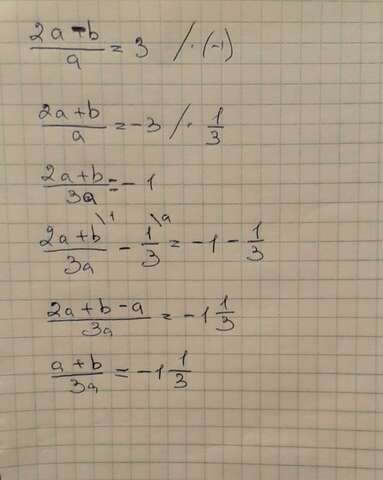 (2a-b)/a = 3 /·(-1)
(2a+b)/a = -3 /· 1/3
(2a+b)/3a = -1
(2a+b)/3a \1 - 1/3 \a = -1 - 1/3
(2a+b-a)/3a = -1 1/3
(a+b)/3a = -1 1/3